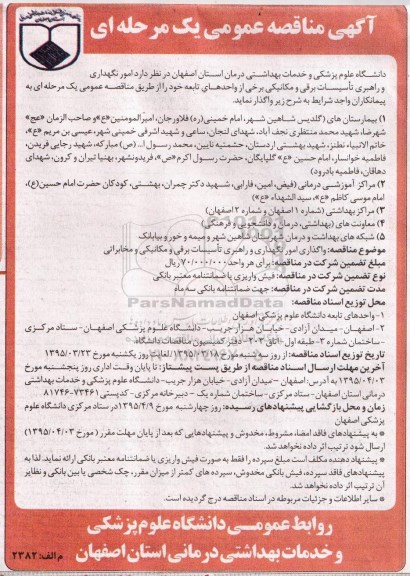 آگهی مناقصه عمومی یک مرحله ای
دانشگاه علوم پزشکی و خدمات بهداشتی درمان استان اصفهان در نظر دارد امور نگهداری
و راهبری تأسیسات برقی و مکانیکی برخی از واحدهای تابعه خود را از طریق مناقصه عمومی یک مرحله ای به
پیمانکاران واجد شرایط به شرح زیر واگذار نماید.
۱) بیمارستان های (گلدیس شاهین شهر، امام خمینی (ره) فلاورجان، امیرالمومنین «ع» و صاحب الزمان «عج»
شهرضا، شهید محمد منتظری نجف آباد، شهدای لنجان، ساعی و شهید اشرفی خمینی شهر، عیسی بن مریم «ع»،
خاتم الانبیاء نطنز، شهید بهشتی اردستان، حشمتیه نایین، محمد رسول ا... (ص) مبارکه، شهید رجایی فریدن،
فاطمیه خوانسار، امام حسین «ع» گلپایگان، حضرت رسول اکرم «ص» فریدونشهر، بهنیا تیران و کرون، شهدای
دهاقان، فاطمیه بادرود)
۲) مراکز آموزشی درمانی (فیض، امین، فارابی، شهید دکتر چمران، بهشتی، کودکان حضرت امام حسین(ع)،
امام موسی کاظم «ع»، سیدالشهداء «ع»)
۳) مراکز بهداشتی (شماره ۱ اصفهان و شماره ۲ اصفهان)
۴) معاونت های (بهداشتی، درمان و دانشجویی و فرهنگی)
۵) شبکه های بهداشت و درمان شهرستان شاهین شهر و میمه و خور و بیابانک
موضوع مناقصه: واگذاری امور نگهداری و راهبری تأسیسات برقی و مکانیکی و مخابراتی
مبلغ تضمین شرکت در مناقصه: برای هر واحد ۷۰/۰۰۰/۰۰۰ ریال
نوع تضمین شرکت در مناقصه: فیش واریزی یا ضمانتنامه معتبر بانکی
مدت تضمین شرکت در مناقصه: جهت ضمانتنامه بانکی سه ماه
ParsNamadData
محل توزیع اسناد مناقصه:
۱- واحدهای تابعه دانشگاه علوم پزشکی اصفهان
۲- اصفهان - میدان آزادی - خیابان هزار جریب - دانشگاه علوم پزشکی اصفهان - ستاد مرکزی
- ساختمان شماره ۳ - طبقه اول - اتاق ۳۰۳ - دفتر کمیسیون مناقصات دانشگاه
تاریخ توزیع اسناد مناقصه: از روز سه شنبه مورخ ۱۳۹۵/۰۳/۱۸ لغایت روز یکشنبه مورخ ۱۳۹۵/۰۳/۲۳
آخرین مهلت ارسال اسناد مناقصه از طریق پست پیشتاز: تا پایان وقت اداری روز پنجشنبه مورخ
۱۳۹۵/۰۴/۰۳ به آدرس: اصفهان - میدان آزادی - خیابان هزار جریب - دانشگاه علوم پزشکی و خدمات بهداشتی
درمانی استان اصفهان - ستاد مرکزی - ساختمان شماره یک - دبیرخانه مرکزی - کدپستی ۷۳۴۶۱-۸۱۷۴۶
زمان و محل بازگشایی پیشنهادهای رسیده: روز چهارشنبه مورخ ۱۳۹۵/۴/۹ در ستاد مرکزی دانشگاه علوم
پزشکی اصفهان
* به پیشنهادهای فاقد امضا، مشروط، مخدوش و پیشنهادهایی که بعد از پایان مهلت مقرر (مورخ ۱۳۹۵/۰۴/۰۳)
ارسال شود ترتیب اثر داده نخواهد شد.
* پیشنهاد دهنده مکلف است مبلغ سپرده را فقط به صورت فیش واریزی یا ضمانتنامه معتبر بانکی ارائه نماید. لذا به
پیشنهادهای فاقد سپرده، فیش بانکی مخدوش، سپرده های کمتر از میزان مقرر، چک شخصی یا بین بانکی و نظایر
آن ترتیب اثر داده نخواهد شد.
* سایر اطلاعات و جزئیات مربوطه در اسناد مناقصه درج گردیده است.
روابط عمومی دانشگاه علوم پزشکی
و خدمات بهداشتی درمانی استان اصفهان
م الف: ۲۳۸۲